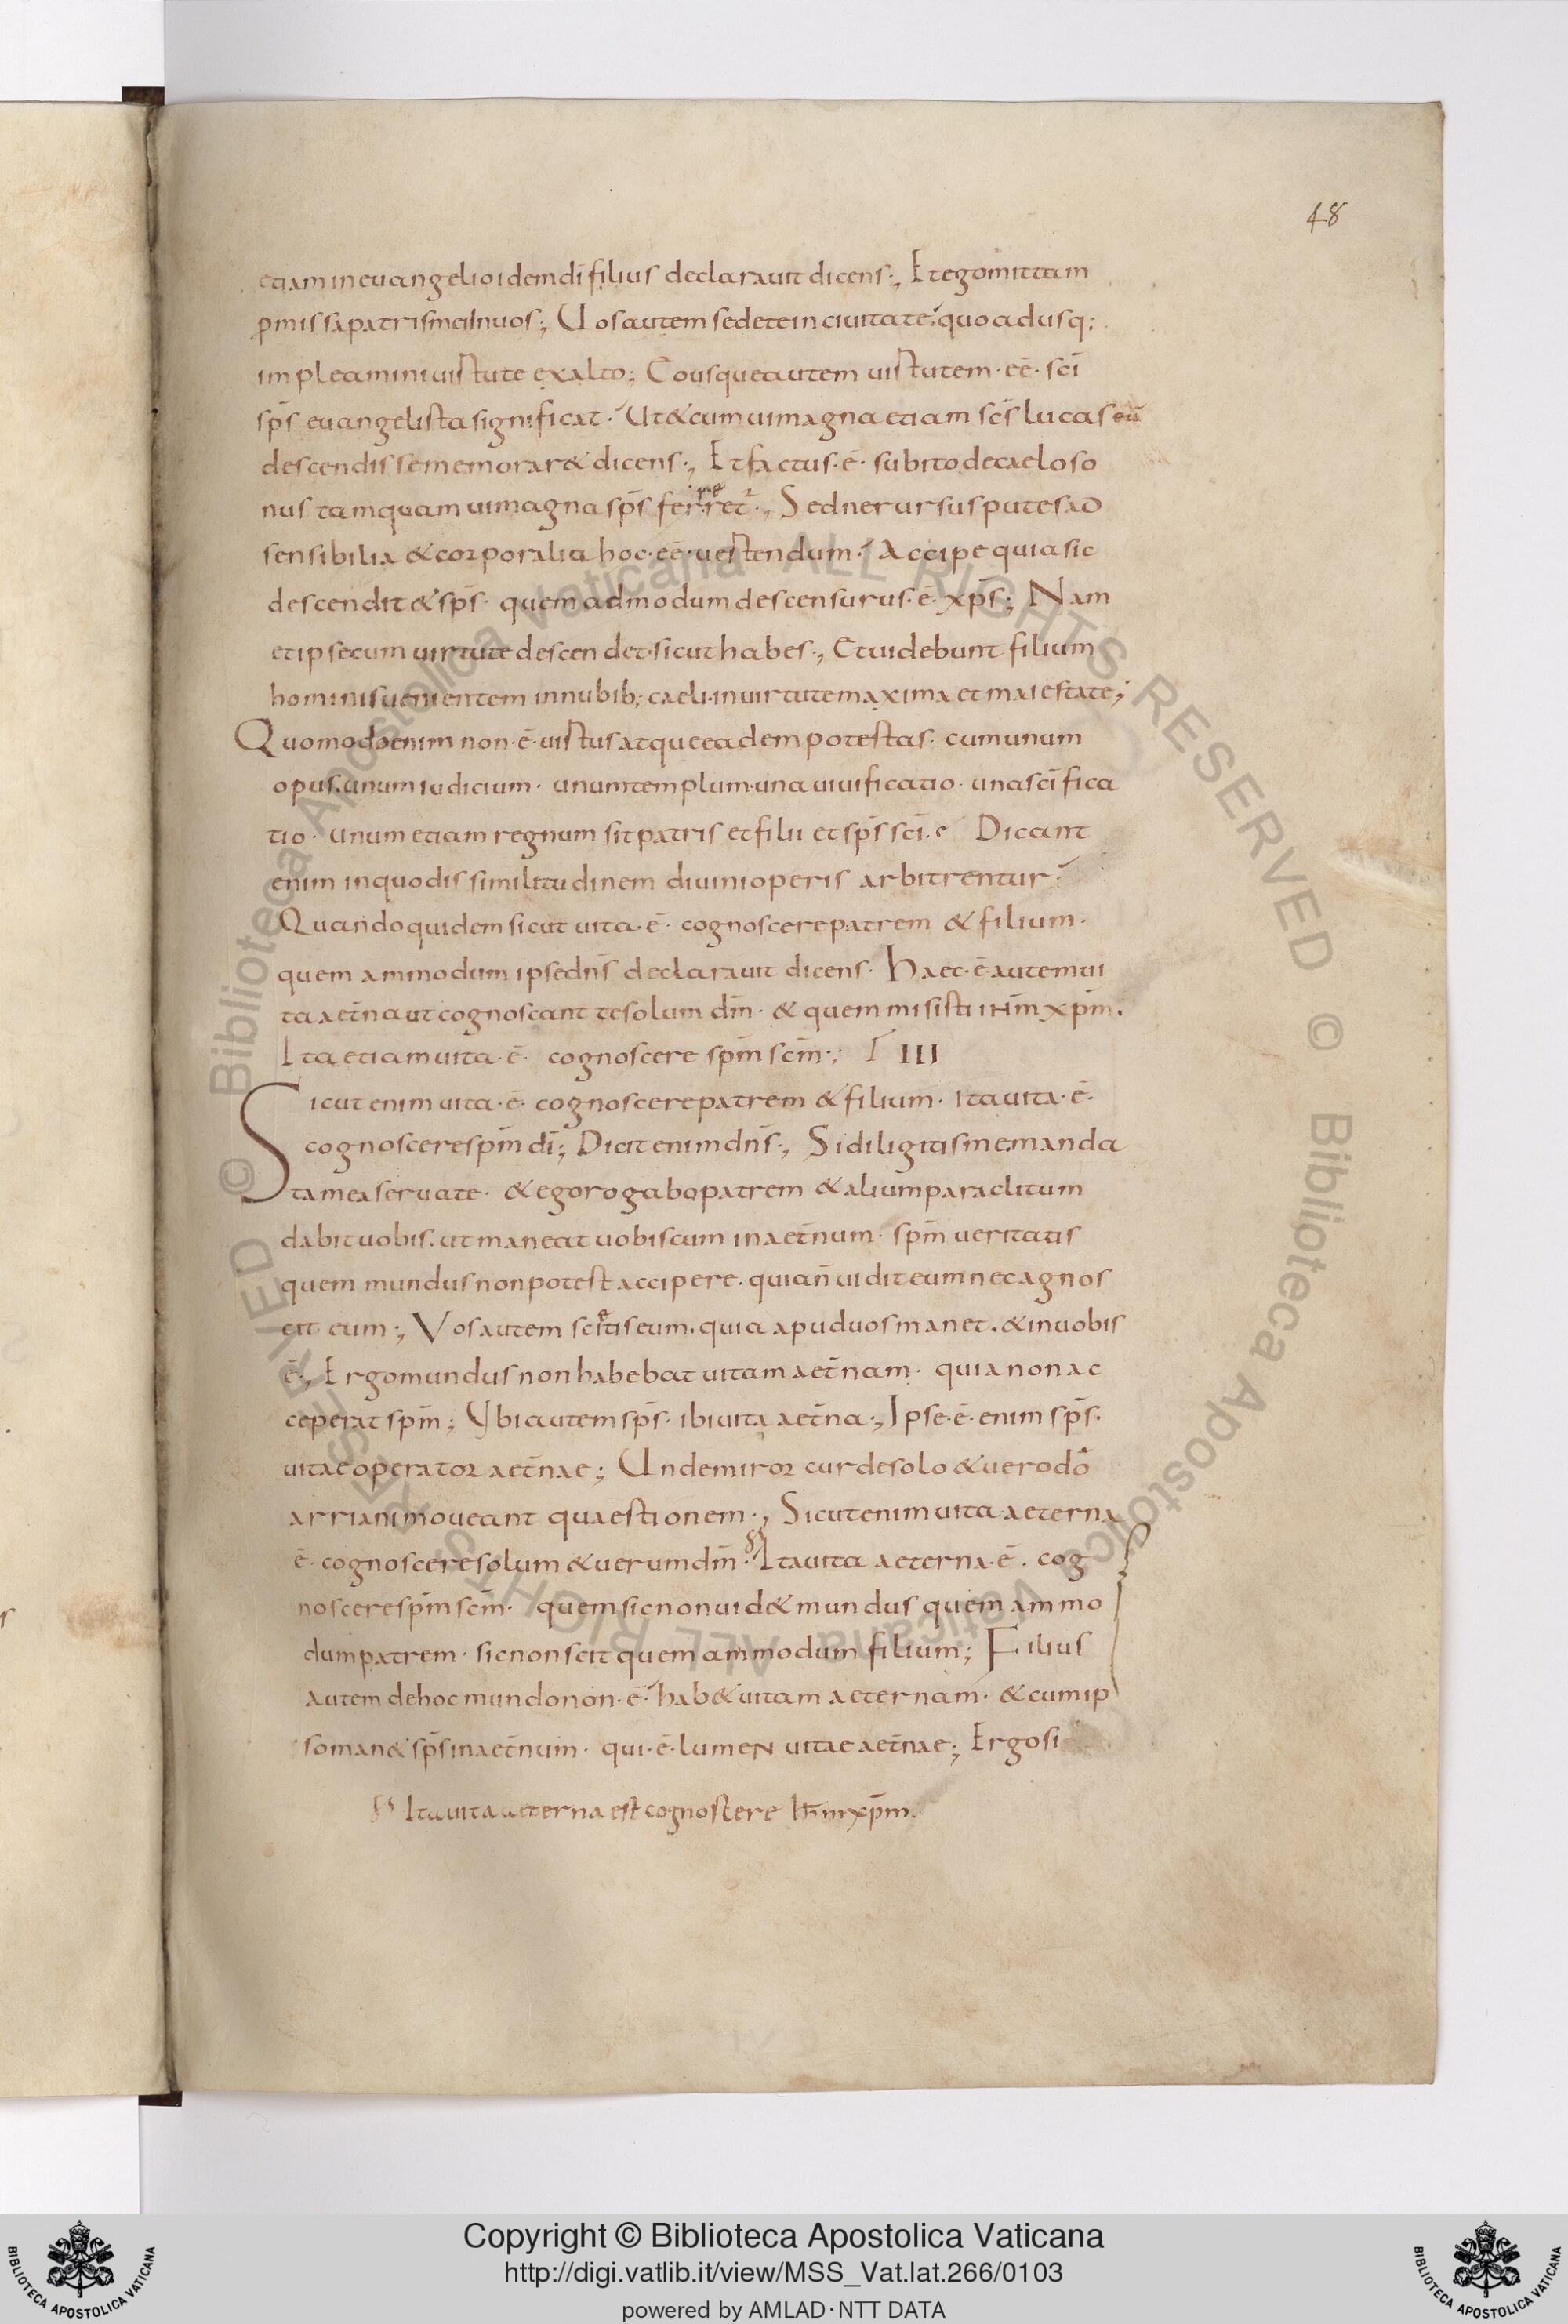 48
etiam in evangelio idem dī filius declarauit dicens·, Et ego mittam
ꝓmissa patris mei in uos; Uos autem sedete in ciuitate· quo ad usq;
impleamini uirtute ex alto; Eousque autem uirtutem·eē· scī
sp̄s euangelista significat· Ut & cum ui magna etiam sc̄s lucas eū
descendisse memorar& dicens·, Et factus·ē· subito de caelo so
nus tamquam ui magna sp̄s ferret·, Sed ne rursus putes ad
sensibilia & corporalia hoc·eē·uertendum· Accipe quia sic
descendit & sp̄s· quem admodum descensurus·ē· xp̄s; Nam
et ipse cum uirtute descendet·sicut habes·, Et uidebunt filium
hominis uenientem in nubib; caeli·in uirtute maxima et maiestate;
Quomodo enim non·ē·uirtus atque eadem potestas· cum unum
opus·unum iudicium· unum templum·una uiuificatio· una scīfica
tio· unum etiam regnum sit patris et filii et sp̄s scī· Dicant
enim in quo dissimilitudinem diuini operis arbitrentur·
Quandoquidem sicut uita·ē· cognoscere patrem & filium·
quem ammodum ipse dn̄s declarauit dicens· Haec·ē autem ui
ta aet̄na ut cognoscant te solum dm̄· & quem misisti ihm̄ xpm̄·
Ita etiam uita·ē· cognoscere spm̄ scm̄·; III
Sicut enim uita·ē· cognoscere patrem & filium· Ita uita·ē·
cognoscere spm̄ dī; Dicit enim dn̄s·, Si diligitis me manda
ta mea seruate· & ego rogabo patrem & alium paraclitum
dabit uobis· ut maneat uobiscum in aet̄num· spm̄ ueritatis
quem mundus non potest accipere· quia n̄ uidit eum nec agnos
cit eum·; Vos autem scitis eum· quia apud uos manet· & in uobis
ē·, Ergo mundus non habebat uitam aet̄nam· quia non ac
ceperat spm̄; Ubi autem sp̄s· ibi uita aet̄na·, Ipse·ē·enim sp̄s·
uitae operator aet̄nae; Unde miror cur de solo & uero dō
arriani moueant quaestionem·, Sicut enim uita aeterna
ē·cognoscere solum & uerum dm̄· Ita uita aeterna·ē· cog
noscere spm̄ scm̄· quem sic non uid& mundus quem ammo
dum patrem· sic non scit quem ammodum filium; Filius
autem de hoc mundo non·ē· hab& uitam aeternam· & cum ip
so man& sp̄s in aet̄num· qui·ē·lumen uitae aet̄nae; Ergo si
Ita uita aeterna est cognoscere Ihm̄ xpm̄·
© Biblioteca Apostolica Vaticana ALL RIGHTS RESERVED © Biblioteca Apostolica Vaticana ALL RIGHTS RESERVED
Copyright © Biblioteca Apostolica Vaticana
http://digi.vatlib.it/view/MSS_Vat.lat.266/0103
powered by AMLAD·NTT DATA
BIBLIOTECA APOSTOLICA VATICANA
BIBLIOTECA APOSTOLICA VATICANA